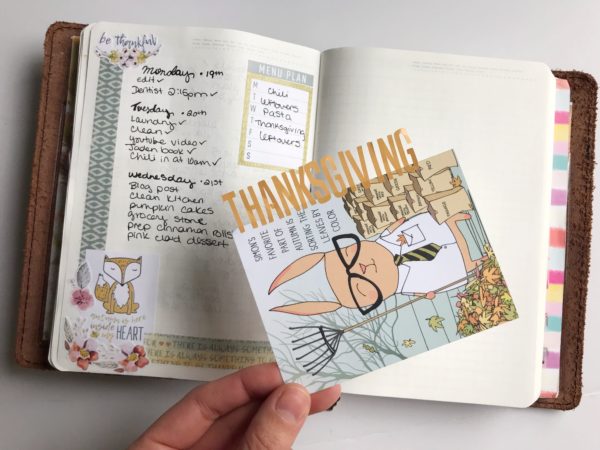 be thankful
Mondays • 19th
edit ✓
Dentist 2:15pm ✓
Tuesday • 20th
Laundry ✓
Clean ✓
youtube video ✓
Jaden book ✓
Chili in at 10am ✓
Wednesday • 21st
Blog post
clean kitchen
pumpkin cakes
grocery store
prep cinnamon rolls
pink cloud dessert
MENU PLAN
M Chili
T Leftovers
W Pasta
T Thanksgiving
F Leftovers
S
S
inside
my HEART
THERE IS ALWAYS SOMETHING
THERE IS ALWAYS SOMETHING TO
THANKSGIVING
SIMON'S
FAVORITE
PART OF
AUTUMN IS
SORTING THE
LEAVES BY
COLOR